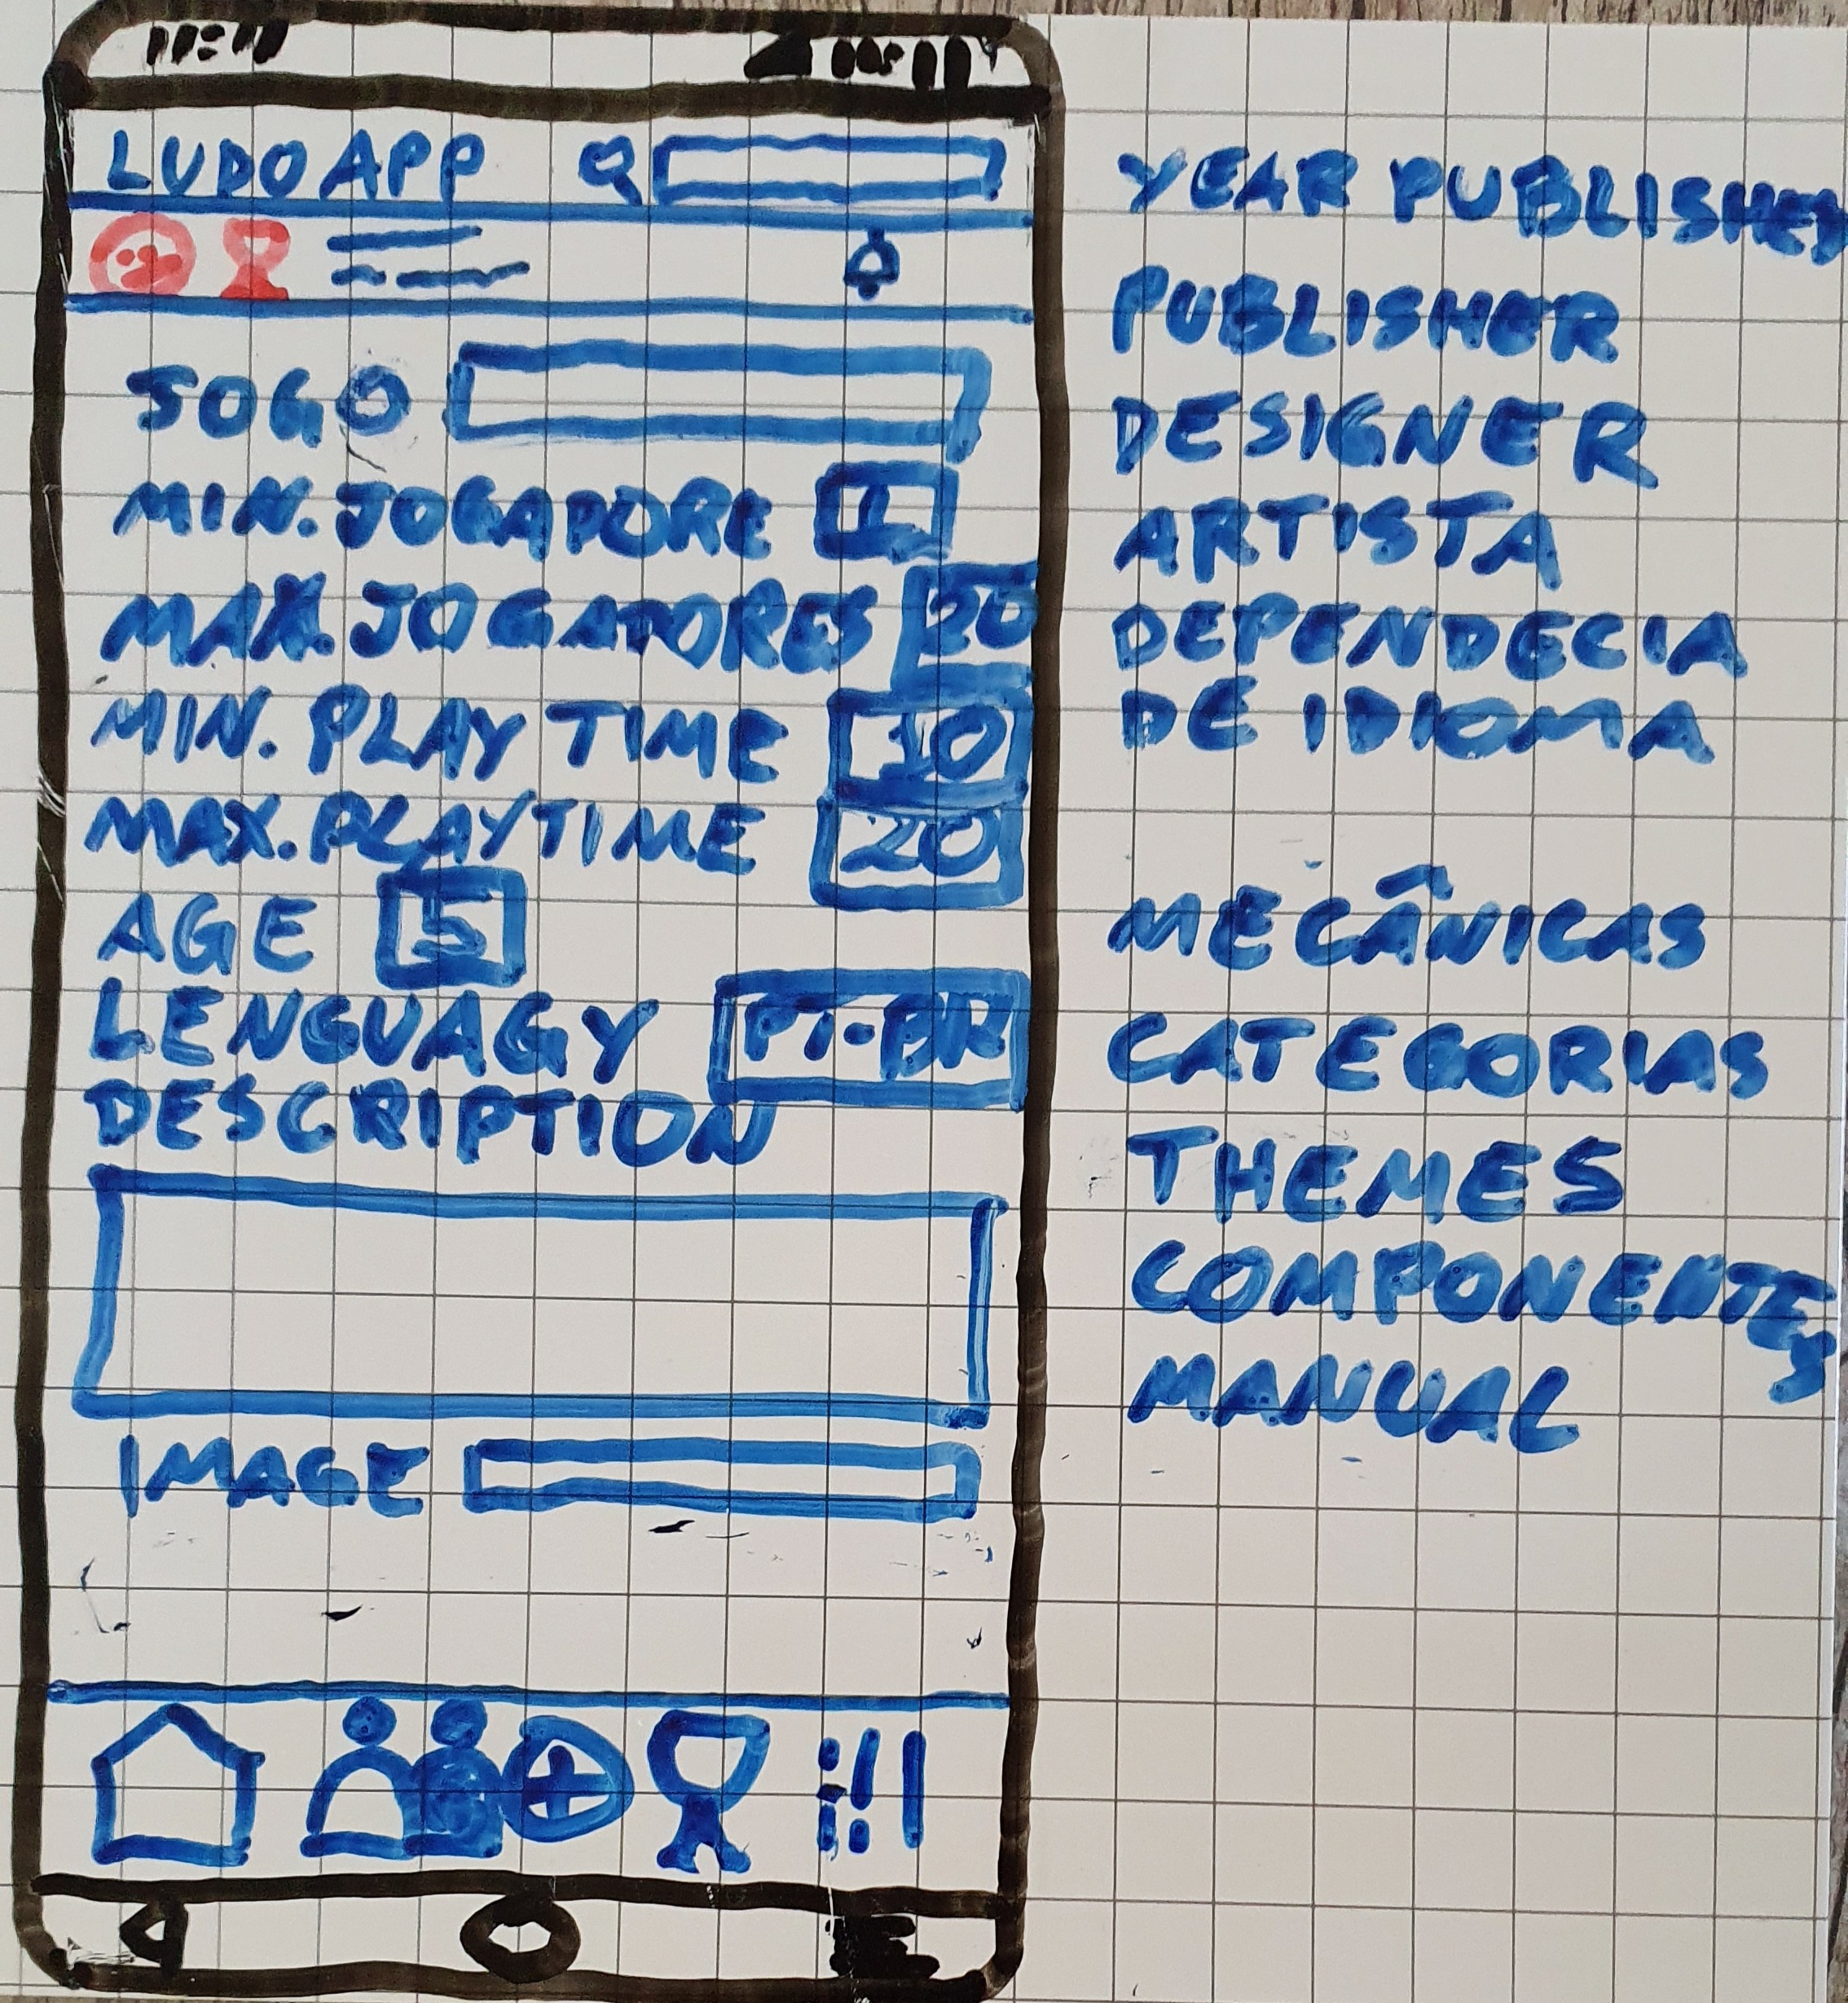 LUDO APP
JOGO
MIN. JOGADORE 1
MAX. JOGADORES 20
MIN. PLAY TIME 10
MAX. PLAYTIME 20
AGE 5
LENGUAGY PT-BR
DESCRIPTION
IMAGE
YEAR PUBLISHED
PUBLISHER
DESIGNER
ARTISTA
DEPENDECIA
DE IDIOMA
MECÂNICAS
CATEGORIAS
THEMES
COMPONENTES
MANUAL